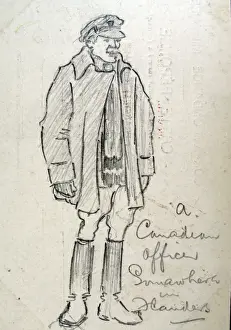 a
Canadian
Officer
Somewhere
in
Flanders